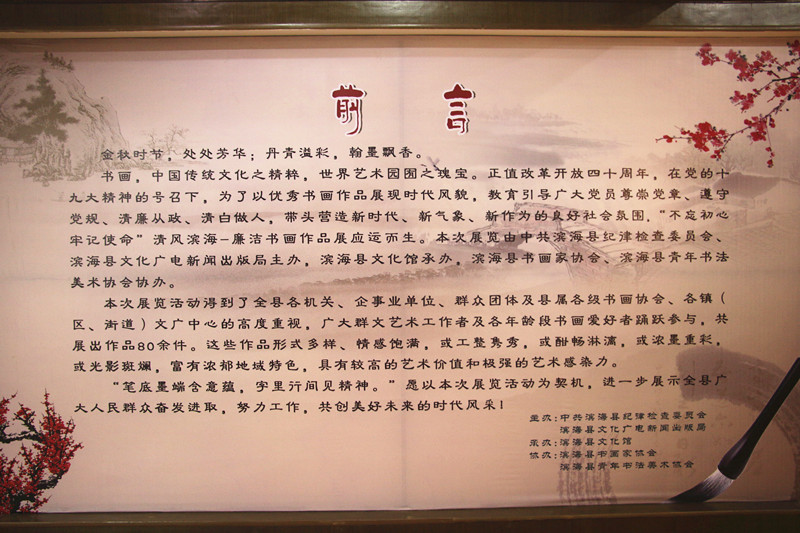 前言
金秋时节，处处芳华；丹青溢彩，翰墨飘香。
书画，中国传统文化之精粹，世界艺术园囿之瑰宝。正值改革开放四十周年，在党的十
九大精神的号召下，为了以优秀书画作品展现时代风貌，教育引导广大党员尊崇党章、遵守
党规、清廉从政、清白做人，带头营造新时代、新气象、新作为的良好社会氛围，“不忘初心
牢记使命”清风滨海-廉洁书画作品展应运而生。本次展览由中共滨海县纪律检查委员会、
滨海县文化广电新闻出版局主办，滨海县文化馆承办，滨海县书画家协会、滨海县青年书法
美术协会协办。
本次展览活动得到了全县各机关、企事业单位、群众团体及县属各级书画协会、各镇（
区、街道）文广中心的高度重视，广大群文艺术工作者及各年龄段书画爱好者踊跃参与，共
展出作品80余件。这些作品形式多样、情感饱满，或工整隽秀，或酣畅淋漓，或浓墨重彩，
或光影斑斓，富有浓郁地域特色，具有较高的艺术价值和极强的艺术感染力。
“笔底墨端含意蕴，字里行间见精神。”愿以本次展览活动为契机，进一步展示全县广
大人民群众奋发进取，努力工作，共创美好未来的时代风采！
主办：中共滨海县纪律检查委员会
滨海县文化广电新闻出版局
承办：滨海县文化馆
协办：滨海县书画家协会
滨海县青年书法美术协会